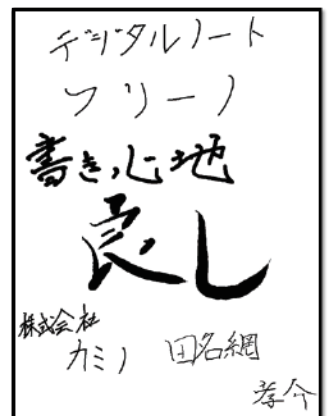 デジタルノート
フリーノ
書き心地
良し
株式会社
カミノ 田名網
孝今